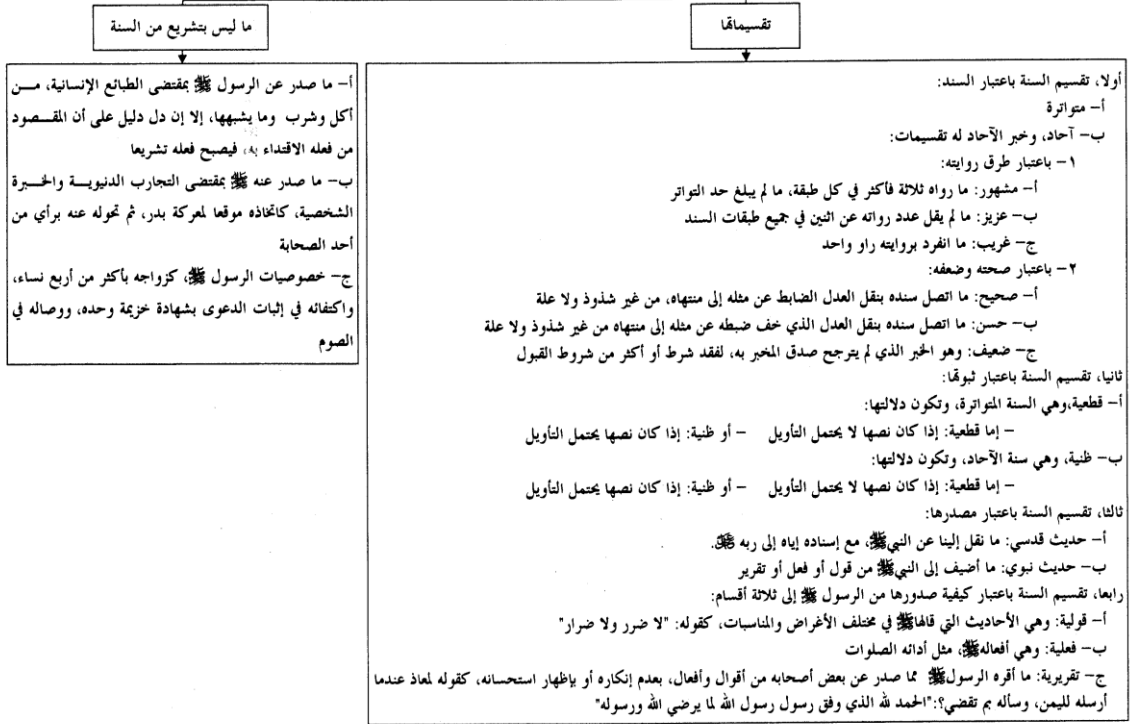 تقسيماتها
أولا، تقسيم السنة باعتبار السند:
أ– متواترة
ب– آحاد، وخبر الآحاد له تقسيمات:
١– باعتبار طرق روايته:
أ– مشهور: ما رواه ثلاثة فأكثر في كل طبقة، ما لم يبلغ حد التواتر
ب– عزيز: ما لم يقل عدد رواته عن اثنين في جميع طبقات السند
ج– غريب: ما انفرد بروايته راو واحد
٢– باعتبار صحته وضعفه:
أ– صحيح: ما اتصل سنده بنقل العدل الضابط عن مثله إلى منتهاه، من غير شذوذ ولا علة
ب– حسن: ما اتصل سنده بنقل العدل الذي خف ضبطه عن مثله إلى منتهاه من غير شذوذ ولا علة
ج– ضعيف: وهو الخبر الذي لم يترجح صدق المخبر به، لفقد شرط أو أكثر من شروط القبول
ثانيا، تقسيم السنة باعتبار ثبوتها:
أ– قطعية،وهي السنة المتواترة، وتكون دلالتها:
– إما قطعية: إذا كان نصها لا يحتمل التأويل – أو ظنية: إذا كان نصها يحتمل التأويل
ب– ظنية، وهي سنة الآحاد، وتكون دلالتها:
– إما قطعية: إذا كان نصها لا يحتمل التأويل – أو ظنية: إذا كان نصها يحتمل التأويل
ثالثا، تقسيم السنة باعتبار مصدرها:
أ– حديث قدسي: ما نقل إلينا عن النبيﷺ، مع إسناده إياه إلى ربه ﷻ.
ب– حديث نبوي: ما أضيف إلى النبيﷺ من قول أو فعل أو تقرير
رابعا، تقسيم السنة باعتبار كيفية صدورها من الرسول ﷺ إلى ثلاثة أقسام:
أ– قولية: وهي الأحاديث التي قالهاﷺ في مختلف الأغراض والمناسبات، كقوله: "لا ضرر ولا ضرار"
ب– فعلية: وهي أفعالهﷺ، مثل أدائه الصلوات
ج– تقريرية: ما أقره الرسولﷺ مما صدر عن بعض أصحابه من أقوال وأفعال، بعدم إنكاره أو بإظهار استحسانه، كقوله لمعاذ عندما
أرسله لليمن، وسأله بم تقضي؟:"الحمد لله الذي وفق رسول رسول الله لما يرضي الله ورسوله"
ما ليس بتشريع من السنة
أ– ما صدر عن الرسول ﷺ بمقتضى الطبائع الإنسانية، مــن
أكل وشرب وما يشبهها، إلا إن دل دليل على أن المقــصود
من فعله الاقتداء به، فيصبح فعله تشريعا
ب– ما صدر عنه ﷺ بمقتضى التجارب الدنيويــة والخــبرة
الشخصية، كاتخاذه موقعا لمعركة بدر، ثم تحوله عنه برأي من
أحد الصحابة
ج– خصوصيات الرسول ﷺ، كزواجه بأكثر من أربع نساء،
واكتفائه في إثبات الدعوى بشهادة خزيمة وحده، ووصاله في
الصوم